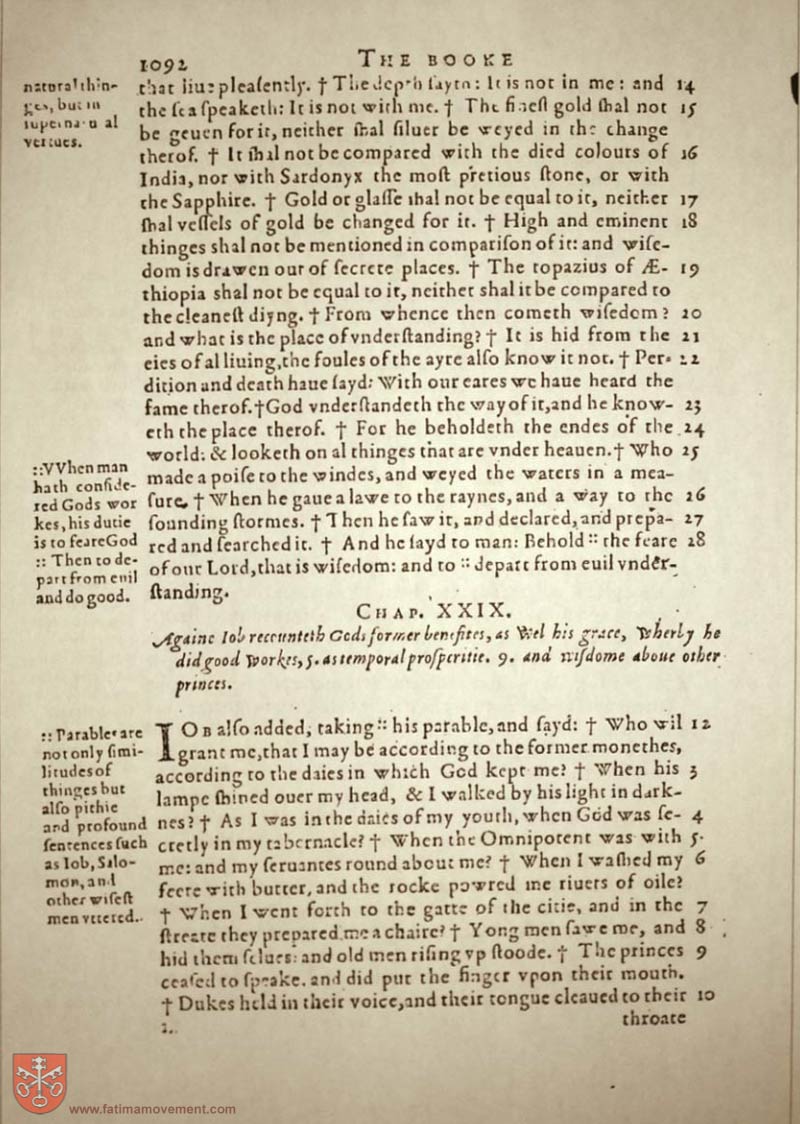 1092
THE BOOKE
naturalthin-
ges, but in
supernatural
vertues.
that liue pleasently. † The depth sayth: It is not in me: and 14
the sea speaketh: It is not with me. † The finest gold shal not 15
be geuen for it, neither shal siluer be weyed in the change
therof. † It shal not be compared with the died colours of 16
India, nor with Sardonyx the most pretious stone, or with
the Sapphire. † Gold or glasse shal not be equal to it, neither 17
shal vessels of gold be changed for it. † High and eminent 18
thinges shal not be mentioned in comparison of it: and wise-
dom is drawen out of secrete places. † The topazius of Æ- 19
thiopia shal not be equal to it, neither shal it be compared to
the cleanest diyng. † From whence then cometh wisedom? 20
and what is the place of vnderstanding? † It is hid from the 21
eies of al liuing, the foules of the ayre also know it not. † Per- 22
dition and death haue sayd: With our eares we haue heard the
fame therof. † God vnderstandeth the way of it, and he know- 23
eth the place therof. † For he beholdeth the endes of the 24
world: & looketh on al thinges that are vnder heauen. † Who 25
made a poise to the windes, and weyed the waters in a mea-
sure. † When he gaue a lawe to the raynes, and a way to the 26
sounding stormes. † Then he saw it, and declared, and prepa- 27
red and searched it. † And he sayd to man: Behold :: the feare 28
of our Lord, that is wisedom: and to :: depart from euil vnder-
standing.
::VVhen man
hath conside-
red Gods wor
kes, his dutie
is to feare God
:: Then to de-
part from euil
and do good.
CHAP. XXIX.
Againe Iob recounteth Gods former benefites, as wel his grace, wherby he
did good workes, 5. as temporal prosperitie. 9. and wisdome aboue other
princes.
:: Parables are
not only simi-
litudes of
thinges but
also pithie
and profound
sentences such
as Iob, Salo-
mon, and
other wisest
men vttered.
IOB also added, taking :: his parable, and sayd: † Who wil 12
grant me, that I may be according to the former monethes,
according to the daies in which God kept me? † When his 3
lampe shined ouer my head, & I walked by his light in dark-
nes? † As I was in the daies of my youth, when God was se- 4
cretly in my tabernacle? † When the Omnipotent was with 5.
me: and my seruantes round about me? † When I washed my 6
feete with butter, and the rocke powred me riuers of oile?
† When I went forth to the gatte of the citie, and in the 7
streate they prepared me a chaire? † Yong men sawe me, and 8
hid them selues: and old men rising vp stoode. † The princes 9
ceased to speake, and did put the finger vpon their mouth.
† Dukes held in their voice, and their tongue cleaued to their 10
throate
www.fatimamovement.com